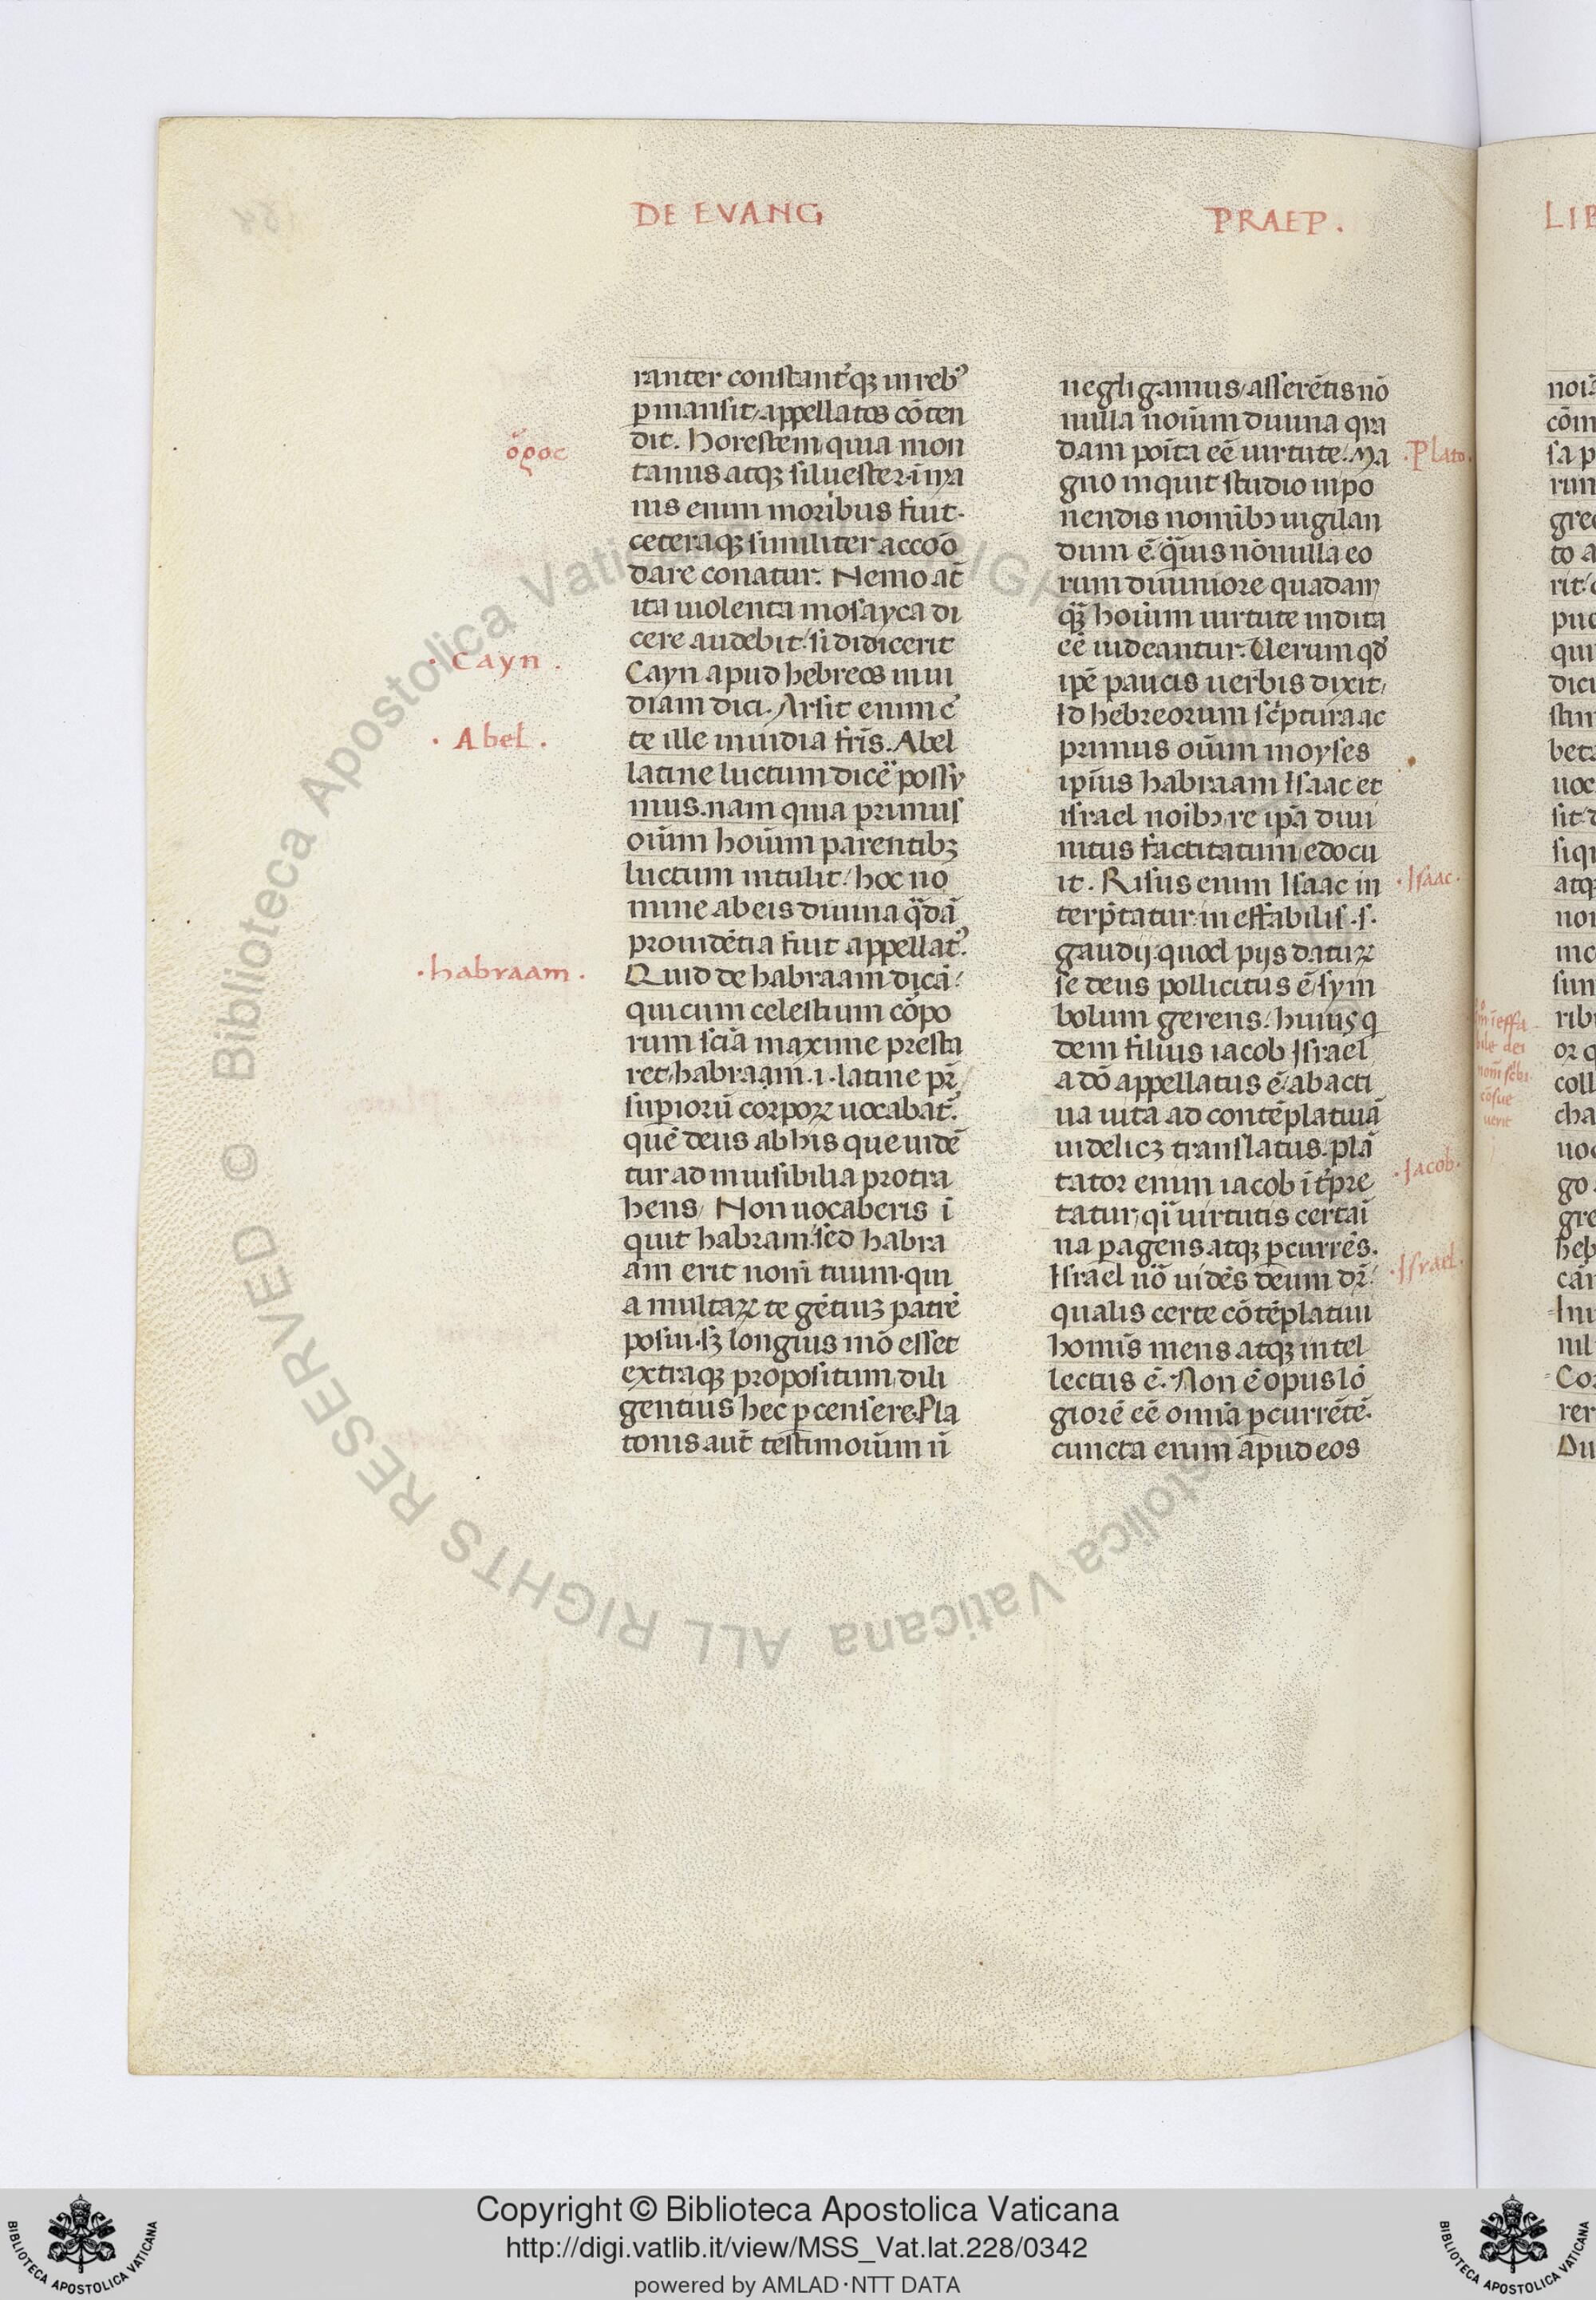 DE EVANG
PRAEP.
ranter constant᷒q; in reb᷒
ꝑmansit/appellatos cōten
dit. Horestem quia mon
tanus atq; siluester īma
nis enim moribus fuit.
ceteraq; similiter accōo
dare conatur. Nemo at̄
ita uiolenta mosayca di
cere audebit/si didicerit
Cayn apud hebreos inui
diam dici. Arsit enim c̄
te ille inuidia fr̄is. Abel
latine luctum dicē possu
mus. nam quia primus
oīum hoīum parentib;
luctum intulit/hoc no
mine ab eis diuina q̄dā
prouidētia fuit appellat᷒.
Quid de habraam dicā/
qui cum celestium cōpo
rum sciā maxime presta
ret/habraam .i. latine pr̄
suꝑiorū corporꝝ uocabat᷒.
quē deus ab his que uidē
tur ad inuisibilia protra
hens/ Non uocaberis ī
quit habram/sed habra
am erit nom̄ tuum. qm̄
a multaꝝ te gētium patrē
posui. s; longius mō esset
extraq; propositum/dili
gentius hec ꝑcensere. Pla
tonis aut̄ testimoīum ñ
negligamus/asserētis nō
nulla noīum diuina qua
dam poīta eē uirtute. Ma
gno inquit studio inpo
nendis nominib; uigilan
dum ē/q̄uis nōnulla eo
rum diuiniore quadam
q̄ȝ hoīum uirtute indita
eē uideantur. Uerum qd̄
ipē paucis uerbis dixit/
Id hebreorum sc̄ptura ac
primus oīum moyses
ipīus habraam Isaac et
israel noib; re ipā diui
nitus factitatum/edocu
it. Risus enim Isaac in
terp̄tatur ineffabilis .s.
gaudij quod pijs daturꝝ
se deus pollicitus ē/sym
bolum gerens. huius q
dem filius iacob Israel
a dō appellatus ē/ab acti
ua uita ad contēplatiuā
uidelic; translatus. plā
tator enim iacob īt̄pre
tatur/qui uirtutis certāi
na ꝑagens atq; ꝑcurrēs.
Israel uō uidēs deum dr̄/
qualis certe cōtēplatiui
homīs mens atq; intel
lectus ē. Non ē opus lō
giorē eē omnia ꝑcurrētē.
cuncta enim apud eos
ὄρος
· Cayn .
· Abel .
· habraam .
· Plato .
· Isaac .
· Jacob ·
· Israel ·
LIB
© Biblioteca Apostolica Vaticana ALL RIGHTS RESERVED
Copyright © Biblioteca Apostolica Vaticana
http://digi.vatlib.it/view/MSS_Vat.lat.228/0342
powered by AMLAD·NTT DATA
BIBLIOTECA APOSTOLICA VATICANA
BIBLIOTECA APOSTOLICA VATICANA